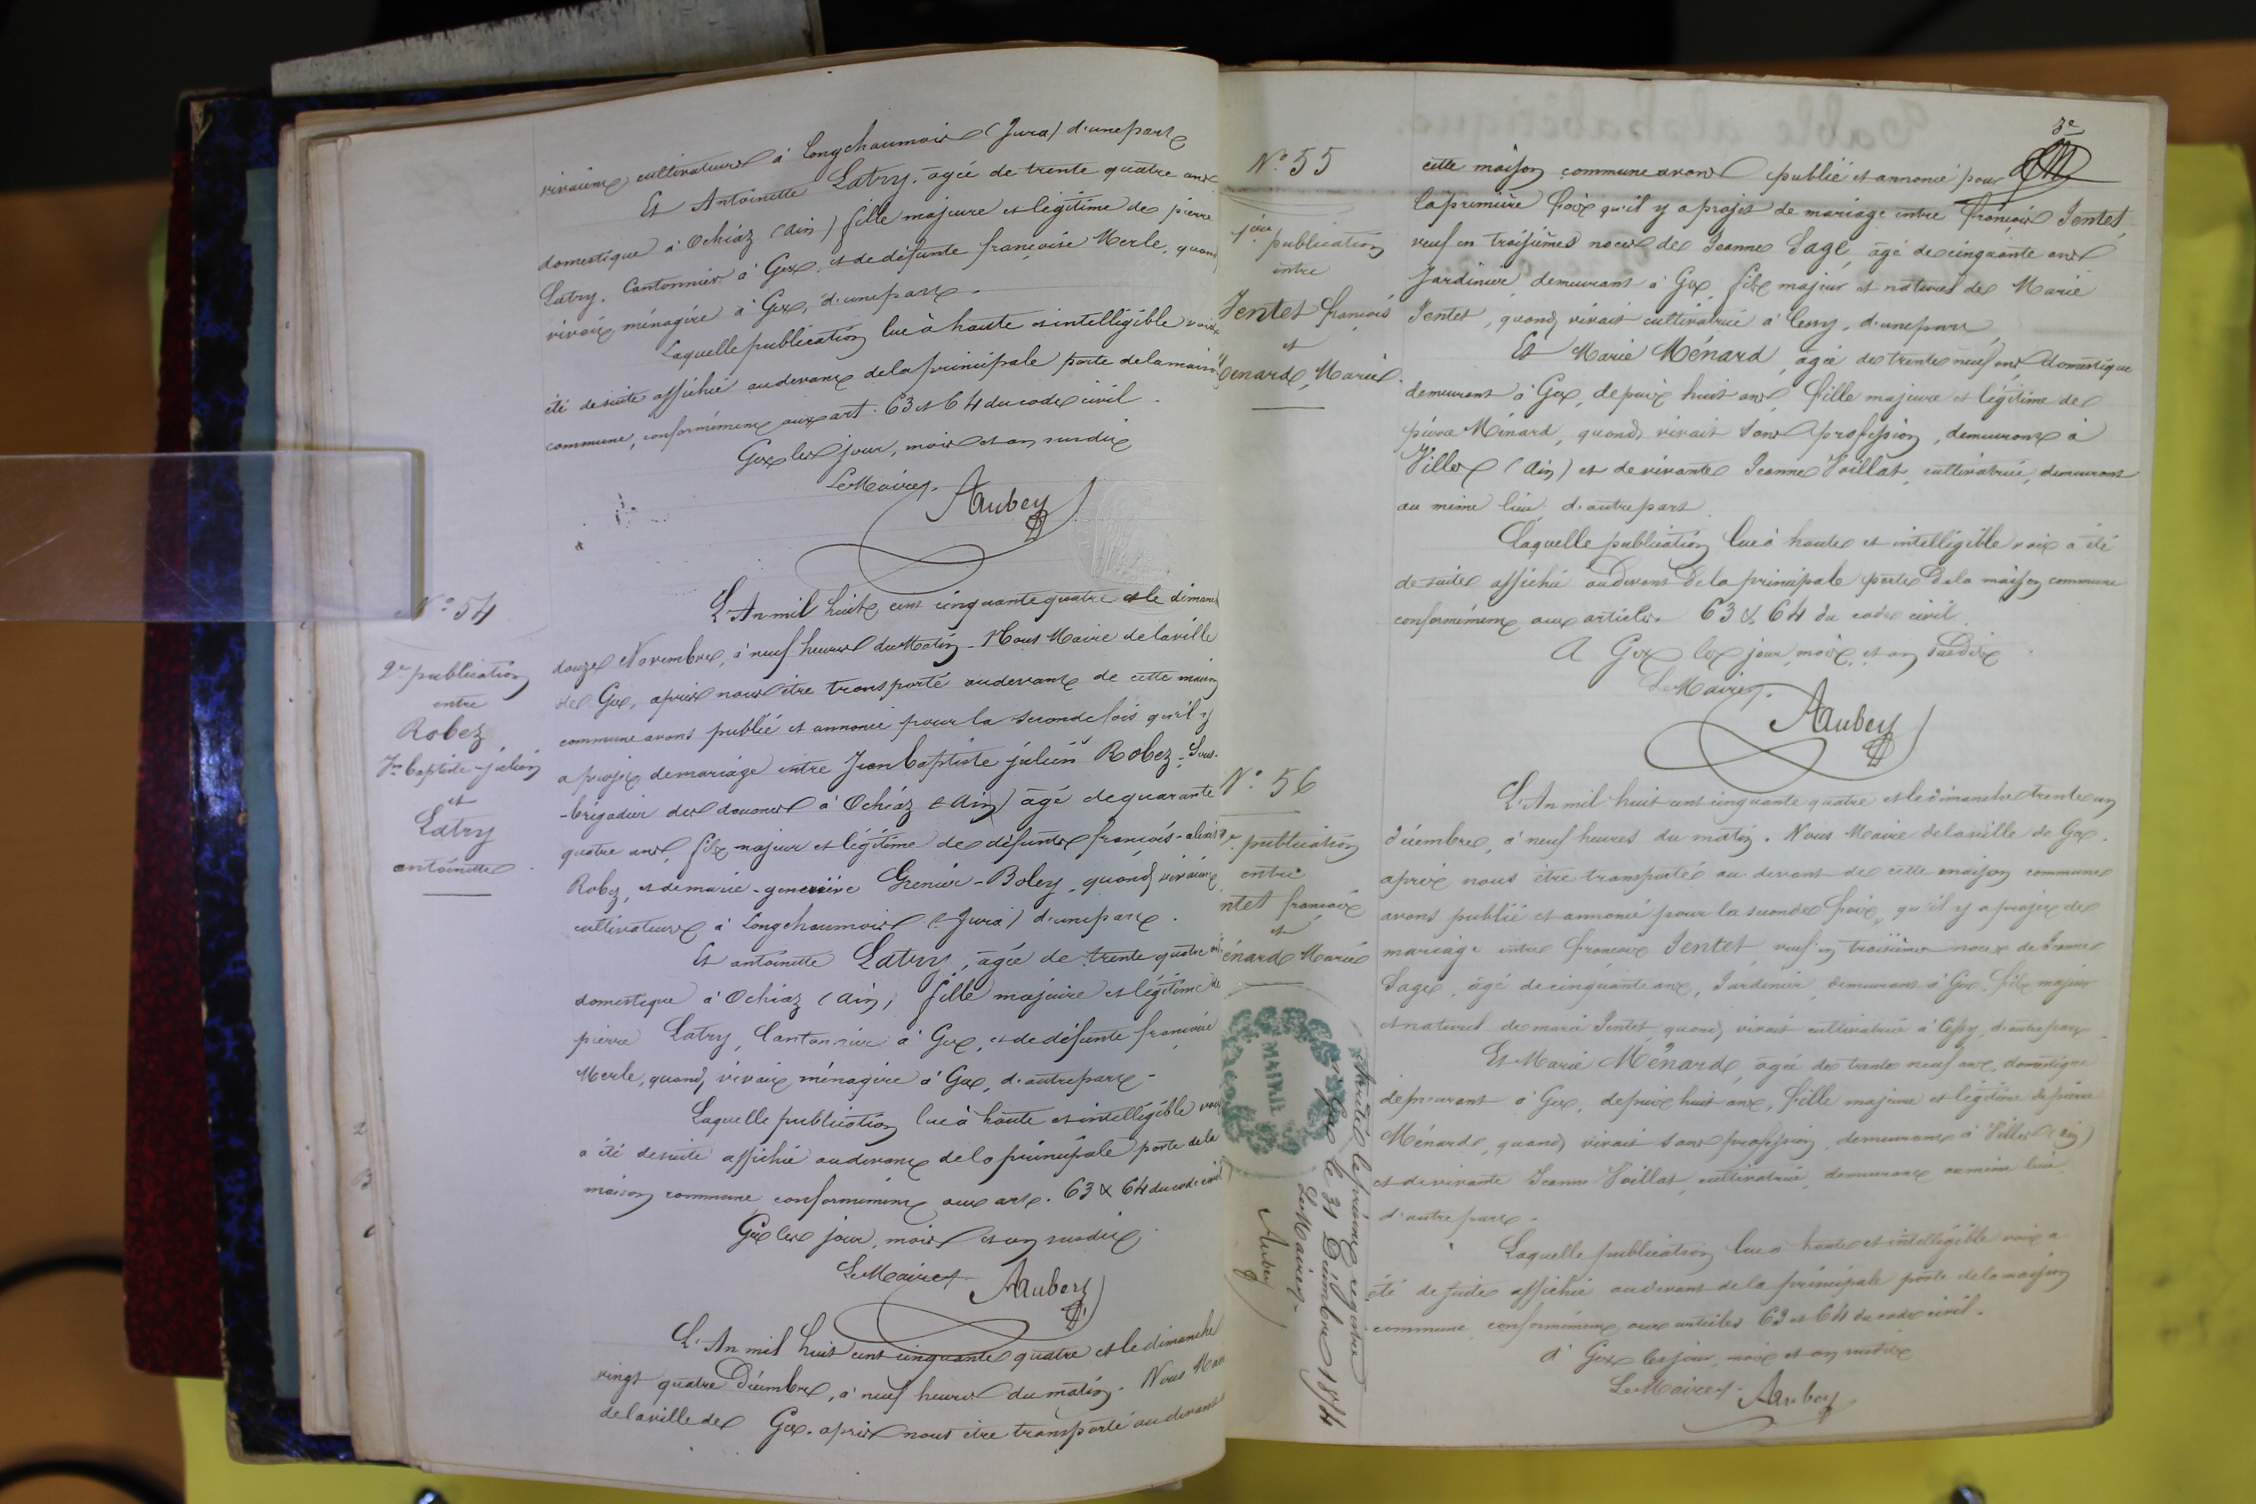 vivaient cultivateurs à Longchaumois (Jura) d'une part
Et Antoinette Latry, agée de trente quatre ans
domestique à Ochiaz (Ain) fille majeure et légitime de pierre
Latry, Cantonnier à Gex, et de défunte françoise Merle, quand
vivait ménagère à Gex, d'une part.
Laquelle publication lue à haute et intelligible voix
été de suite affichée au devant de la principale porte de la maison
commune, conformément aux art. 63 et 64 du code civil.
Gex les jour, mois et an susdits
Le Maire,
Aubery
N° 54
2e publication
entre
Robez
Jn baptiste-julien
et
Latry
antoinette
L'An mil huit cent cinquante quatre et le dimanche
douze Novembre, à neuf heures du Matin. Nous Maire de la ville
de Gex, après nous être transporté au devant de cette maison
commune avons publié et annoncé pour la seconde fois qu'il y
a projet de mariage entre Jean baptiste julien Robez, Sous-
-brigadier des douanes à Ochiaz (Ain) âgé de quarante
quatre ans, fils majeur et légitime de défunts françois-alexis
Robez, et de marie-geneviève Grenier-Boley, quand vivaient
cultivateurs à Longchaumois (Jura) d'une part.
Et antoinette Latry, agée de trente quatre ans
domestique à Ochiaz (Ain) fille majeure et légitime de
pierre Latry, Cantonnier à Gex, et de défunte françoise
Merle, quand vivait ménagère à Gex, d'autre part.
Laquelle publication lue à haute et intelligible voix
a été de suite affichée au devant de la principale porte de la
maison commune conformément aux art. 63 & 64 du code civil
Gex les jour, mois et an susdits
Le Maire
Aubery
L'An mil huit cent cinquante quatre et le dimanche
vingt quatre Décembre, à neuf heures du matin. Nous Maire
de la ville de Gex. après nous être transporté au devant
N° 55
1ère publication
entre
Jentet françois
et
Ménard, Marie
3e
cette maison commune avons publié et annoncé pour
la première fois qu'il y a projet de mariage entre françois Jentet,
veuf en troisièmes noces de Jeanne Sage, âgé de cinquante ans
Jardinier, demeurant à Gex, fils majeur et naturel de Marie
Jentet, quand vivait cultivatrice à Cessy, d'une part,
Et Marie Ménard, agée de trente neuf ans domestique
demeurant à Gex, depuis huit ans, fille majeure et légitime de
pierre Ménard, quand vivait sans profession, demeurant à
Villes (Ain) et de vivante Jeanne Vaillat, cultivatrice, demeurant
au même lieu, d'autre part.
Laquelle publication lue à haute et intelligible voix a été
de suite affichée au devant de la principale porte de la maison commune
conformément aux articles 63 & 64 du code civil
A Gex les jour, mois, et an susdits
Le Maire,
Aubery
N° 56
2e publication
entre
Jentet françois
et
Ménard Marie
L'An mil huit cent cinquante quatre et le dimanche trente un
Décembre, à neuf heures du matin. Nous Maire de la ville de Gex.
après nous être transporté au devant de cette maison commune
avons publié et annoncé pour la seconde fois, qu'il y a projet de
mariage entre françois Jentet, veuf en troisièmes noces de Jeanne
Sage, âgé de cinquante ans, Jardinier, demeurant à Gex, fils majeur
et naturel de marie Jentet quand vivait cultivatrice à Cessy, d'autre part
Et Marie Ménard, agée de trente neuf ans, domestique
demeurant à Gex, depuis huit ans, fille majeure et légitime de pierre
Ménard, quand vivait sans profession, demeurant à Villes (ain)
et de vivante Jeanne Vaillat, cultivatrice, demeurant au même lieu,
d'autre part.
Laquelle publication lue à haute et intelligible voix a
été de suite affichée au devant de la principale porte de la maison
commune, conformément aux articles 63 et 64 du code civil.
A Gex les jour, mois et an susdits
Le Maire
Aubery
MAIRIE
Arrêté le présent registre
à Gex le 31 Décembre 1854
Le Maire
Aubery